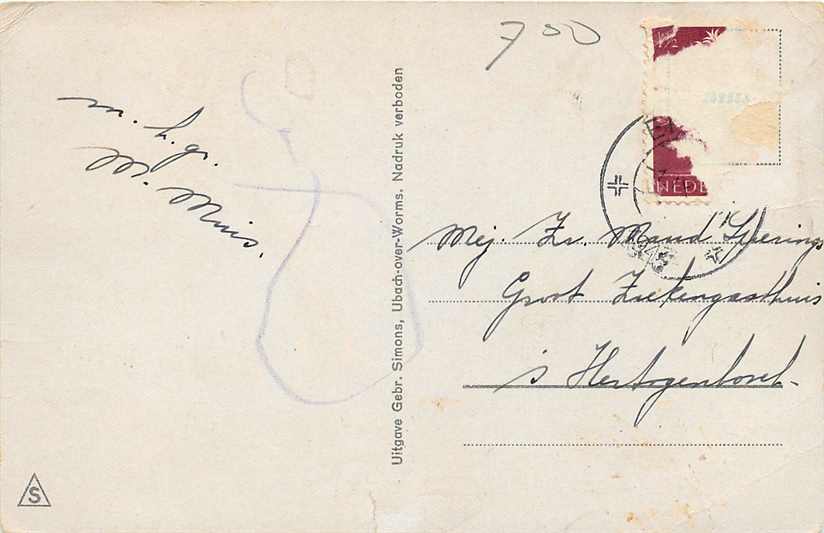 7 50
m. h. gr.
W. Muis.
Uitgave Gebr. Simons, Ubach-over-Worms. Nadruk verboden
NEDE
Mej. Zr. Maud
Groot Ziekengasthuis
's Hertogenbosch.
S